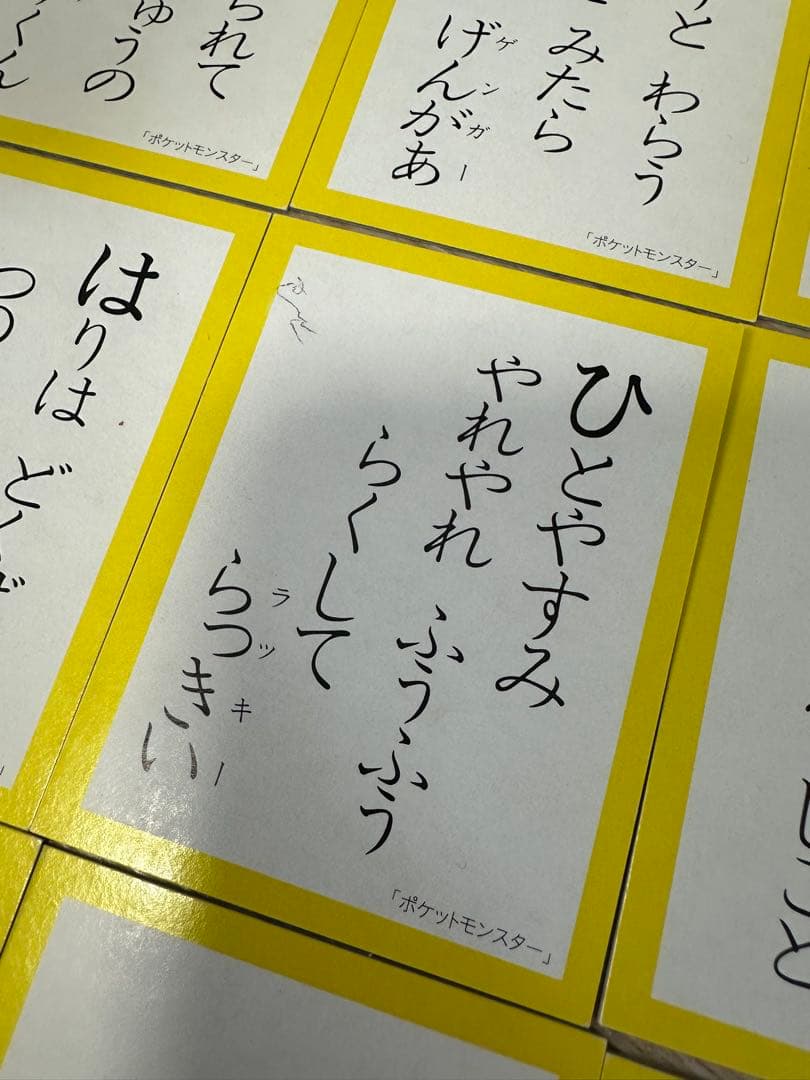 られて
ゅうの
くん
「ポケットモンスター」
と わらう
みたら
げんがあ
ゲンガー
「ポケットモンスター」
はりは
ひとやすみ
やれやれ ふうふう
らくして
らつきい
ラツキー
「ポケットモンスター」